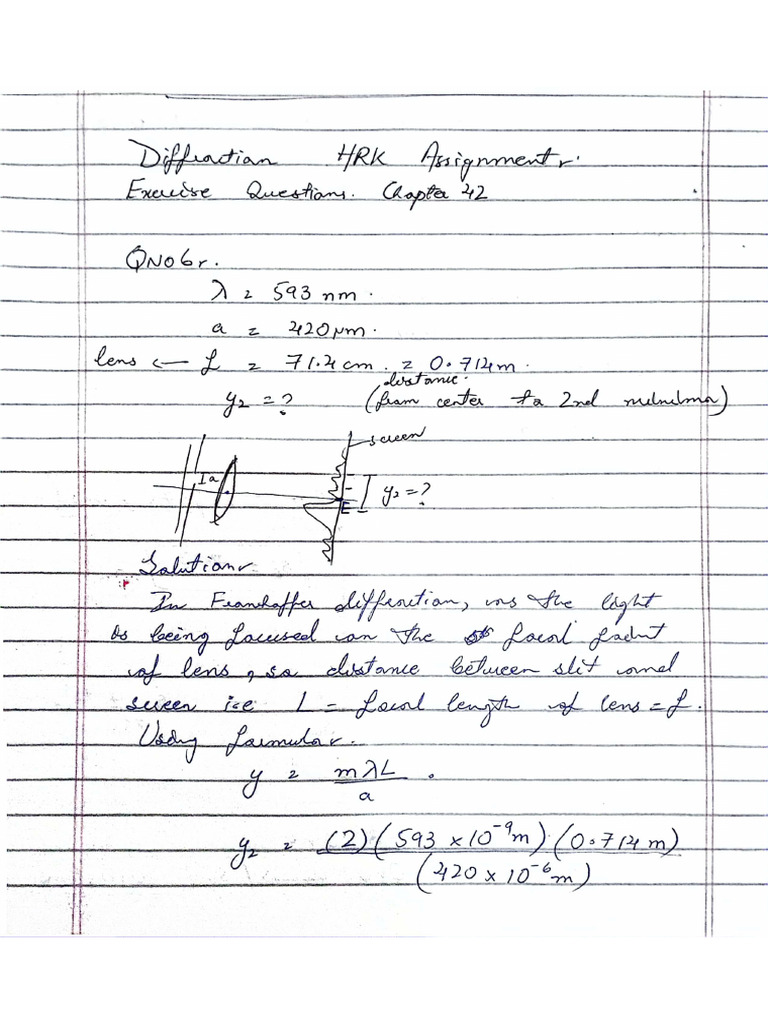 Diffraction HRK Assignment:
Exercise Questions. Chapter 42
QNO6:
λ = 593 nm.
a = 420 μm.
lens ← f = 71.4 cm. = 0.714 m.
distance.
y₂ = ? (from center to 2nd minima)
screen
a
y₂ = ?
E
Solution:
In Fraunhoffer diffraction, as the light
is being focused on the focal point
of lens, so distance between slit and
screen i.e L = focal length of lens = f.
Using formula:
y = mλL / a .
y₂ = (2)(593 × 10⁻⁹m)(0.714 m) / (420 × 10⁻⁶m)